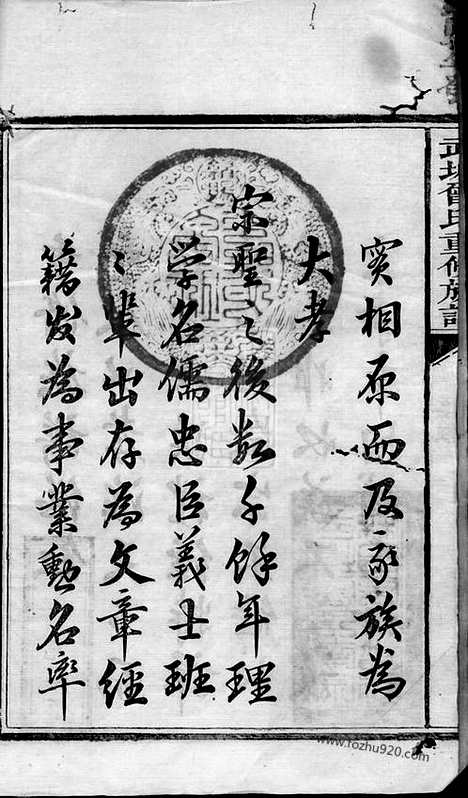 武城曾氏重修族譜
實相原而及家族為
大孝
宗聖之後數千餘年理
学名儒忠臣義士班
班輩出存為文章經
籍发為事業勳名率
www.fozhu920.com